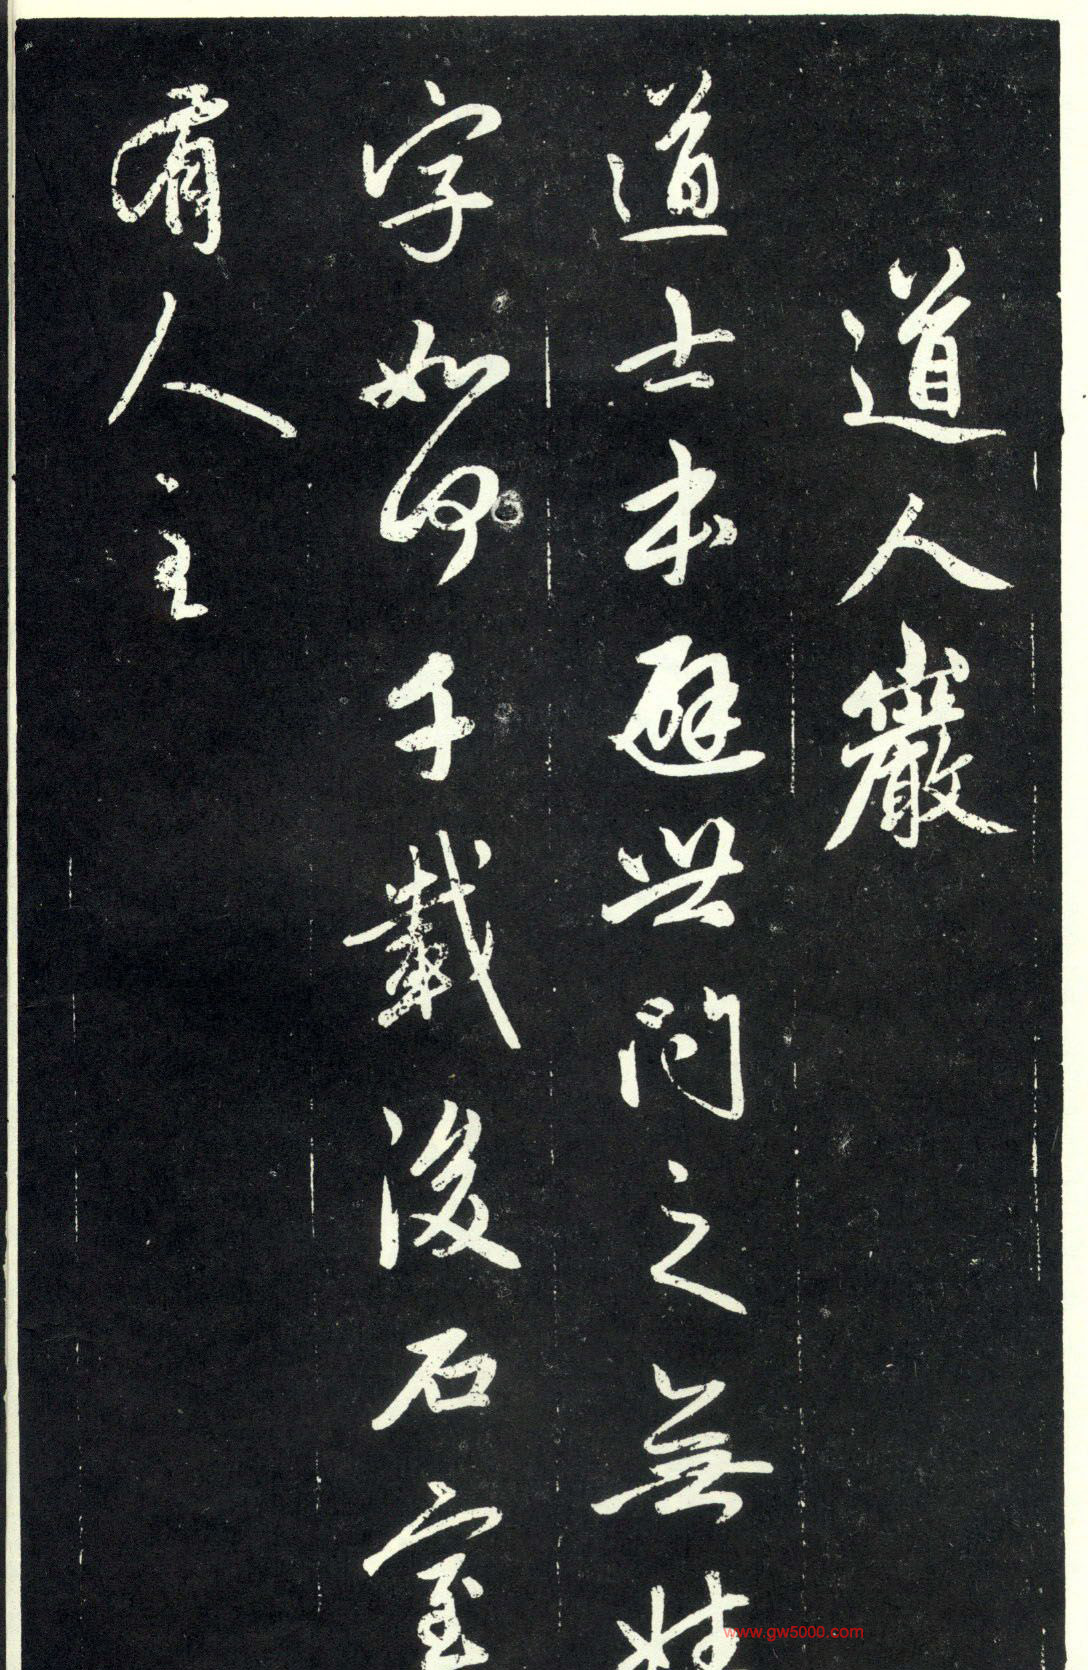 道人巖
道士本避世問之無姓
字如何千載後石室
有人主
www.gw5000.com